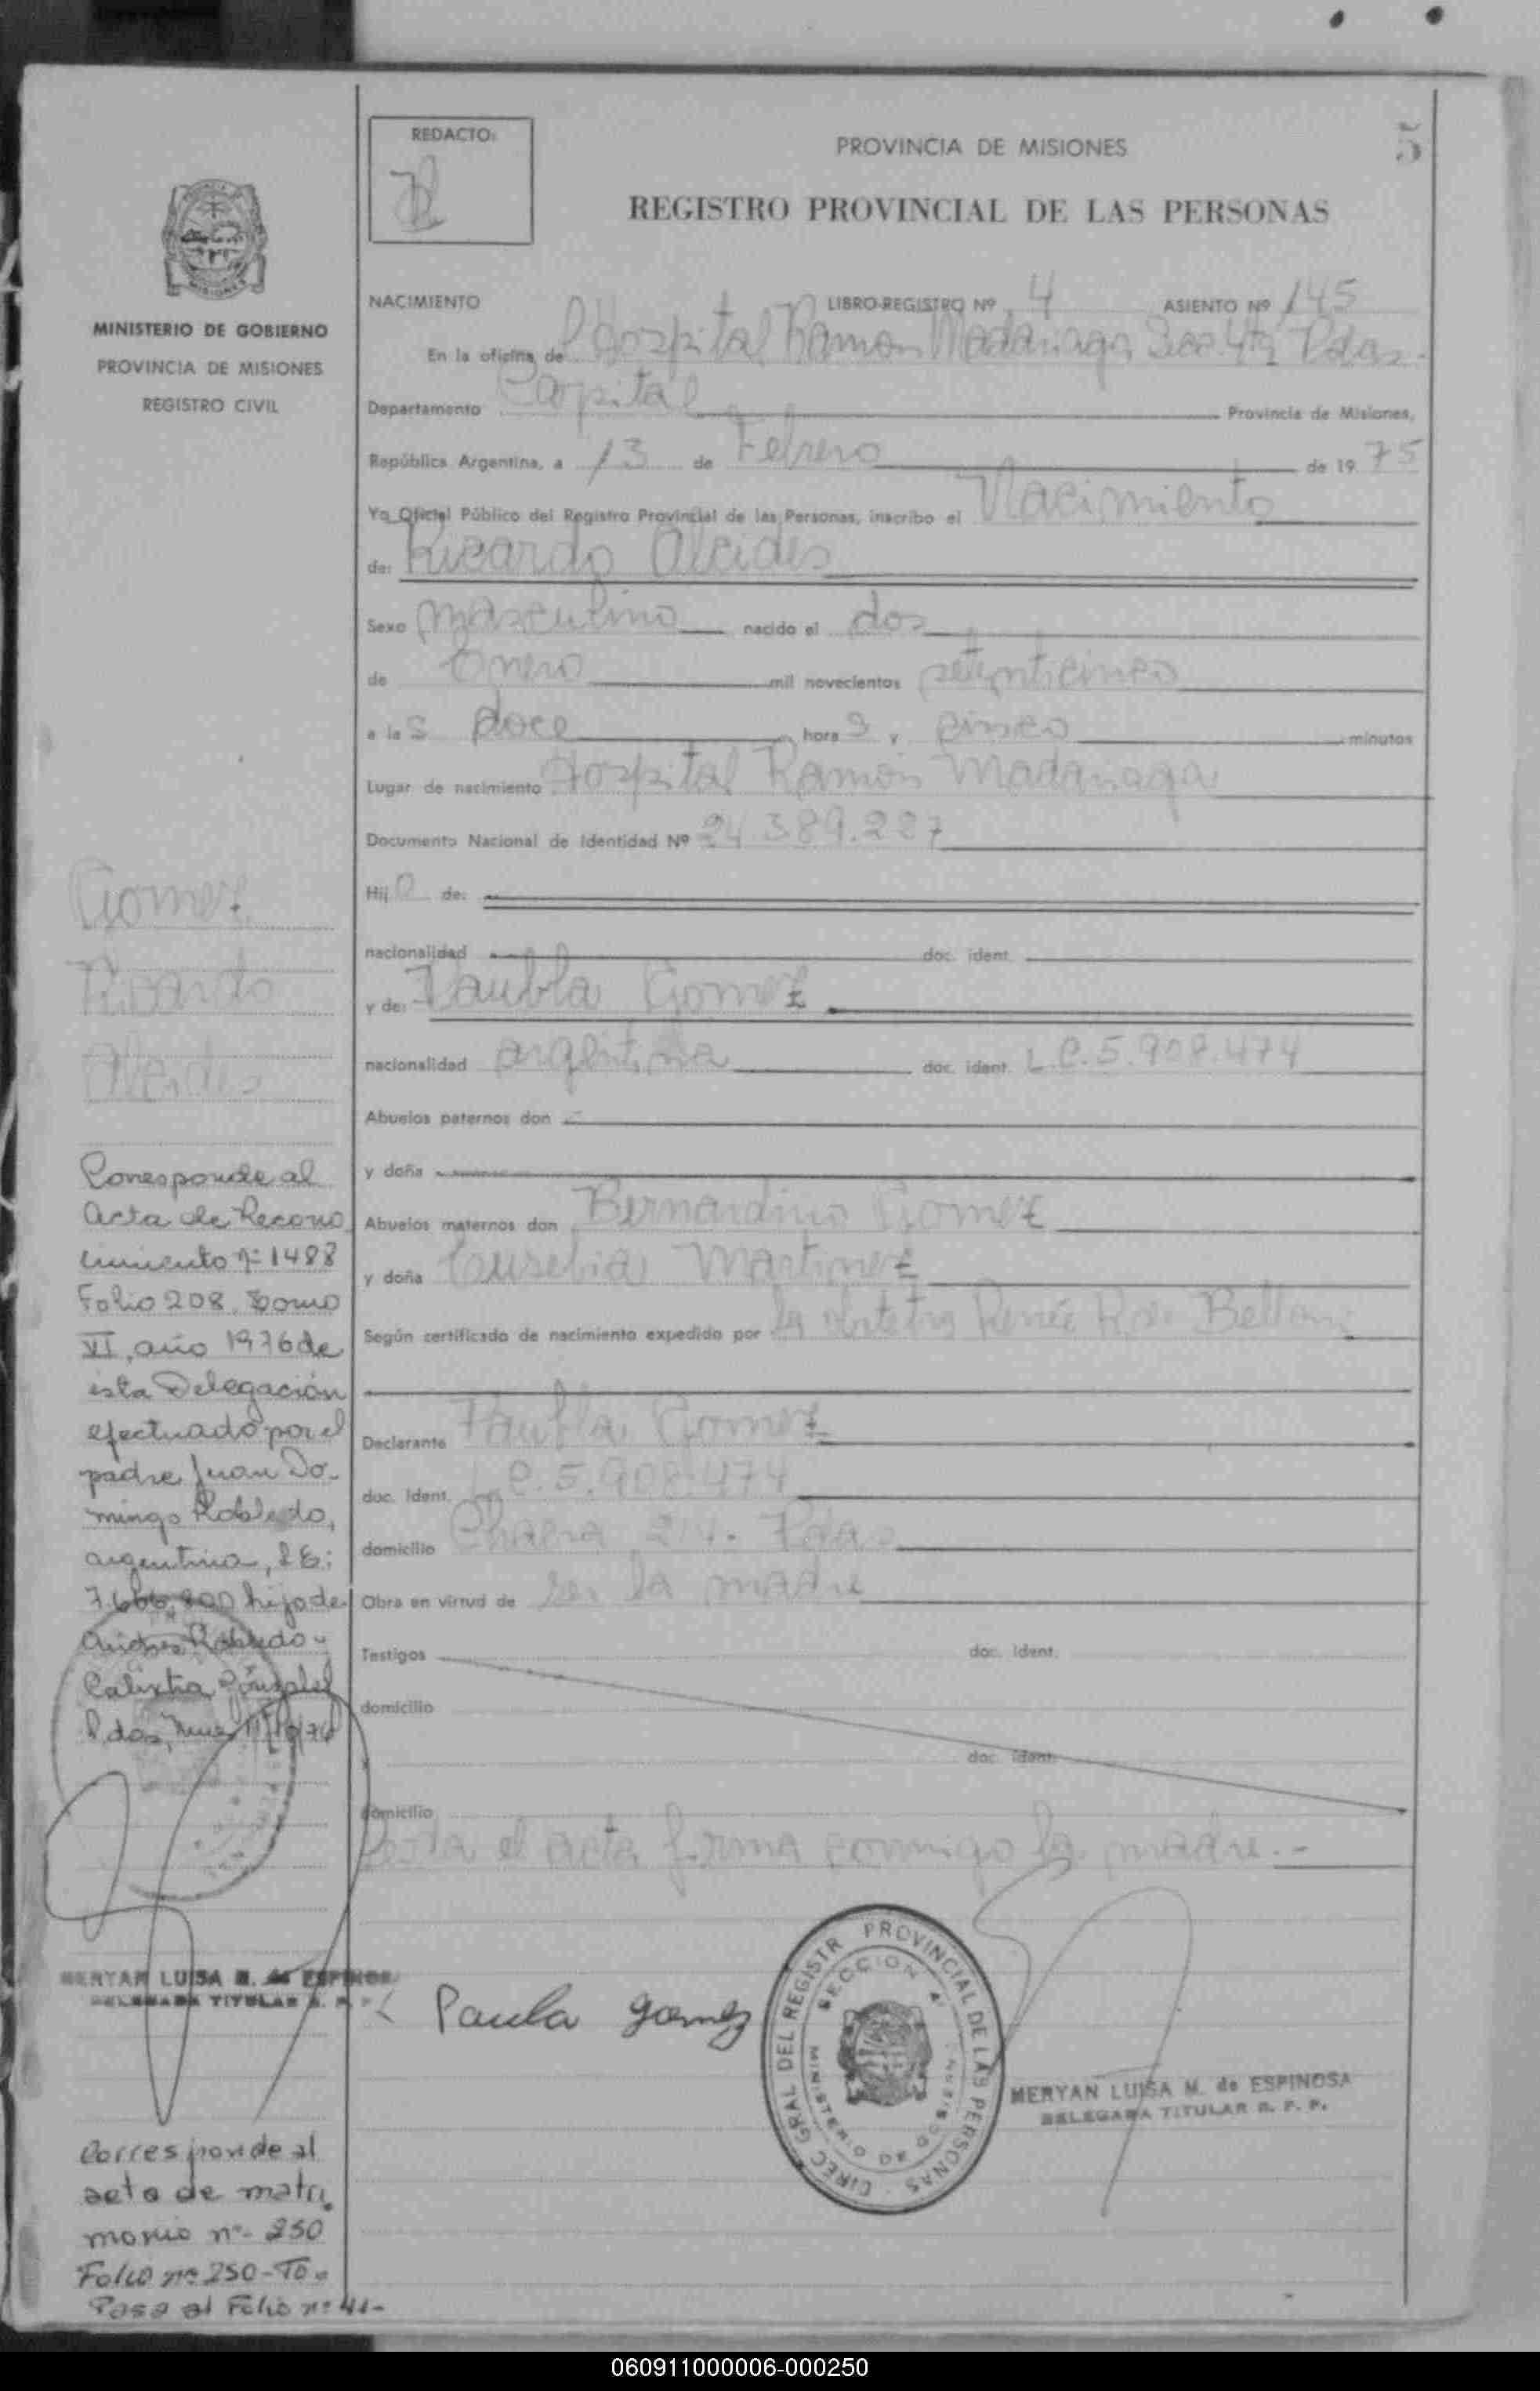 5
REDACTO:
PROVINCIA DE MISIONES
REGISTRO PROVINCIAL DE LAS PERSONAS
MINISTERIO DE GOBIERNO
PROVINCIA DE MISIONES
REGISTRO CIVIL
NACIMIENTO LIBRO-REGISTRO Nº 4 ASIENTO Nº 145
En la oficina de Hospital Ramon Madariaga Secc. 4ta Pdas.
Departamento Capital Provincia de Misiones,
República Argentina, a 13 de Febrero de 19 75
Yo Oficial Público del Registro Provincial de las Personas, inscribo el Nacimiento
de: Ricardo Alcides
Sexo masculino nacido el dos
de Enero mil novecientos setenticinco
a las doce horas y cinco minutos
Lugar de nacimiento Hospital Ramón Madariaga
Documento Nacional de Identidad Nº 24.389.227
Hijo de:
nacionalidad doc. ident.
y de: Paubla Gomez
nacionalidad argentina doc. ident. L.C. 5.908.474
Abuelos paternos don
y doña
Abuelos maternos don Bernardino Gomez
y doña Eusebia Martinez
Según certificado de nacimiento expedido por la obstetra Renée Belloni
Declarante Paubla Gomez
doc. ident. L.C. 5.908.474
domicilio Chacra Pdas
Obra en virtud de ser la madre
Testigos doc. ident.
domicilio
doc. ident.
domicilio
el acta firma conmigo la madre.-
Paula gomez
DIREC GRAL DEL REGISTR PROVINCIAL DE LAS PERSONAS
SECCION 4ª
MINISTERIO DE GOBIERNO
MERYAN LUISA M. de ESPINOSA
DELEGADA TITULAR R. P. P.
Gomez
Ricardo
Alcides
Corresponde al
acta de Recono
cimiento Nº 1488
Folio 208, Tomo
VI, año 1976 de
esta Delegación
efectuado por el
padre Juan Do-
mingo Robledo,
argentino, LE:
7.666.800 hijo de
Andres Robledo y
Calixta Gonzalez
Pdas, Mnes 11/10/76
MERYAN LUISA M. de ESPINOSA
DELEGADA TITULAR R. P. P.
Corresponde al
acta de matri
monio nº 250
Folio nº 250-Tº
Pasa al Folio nº 41-
060911000006-000250